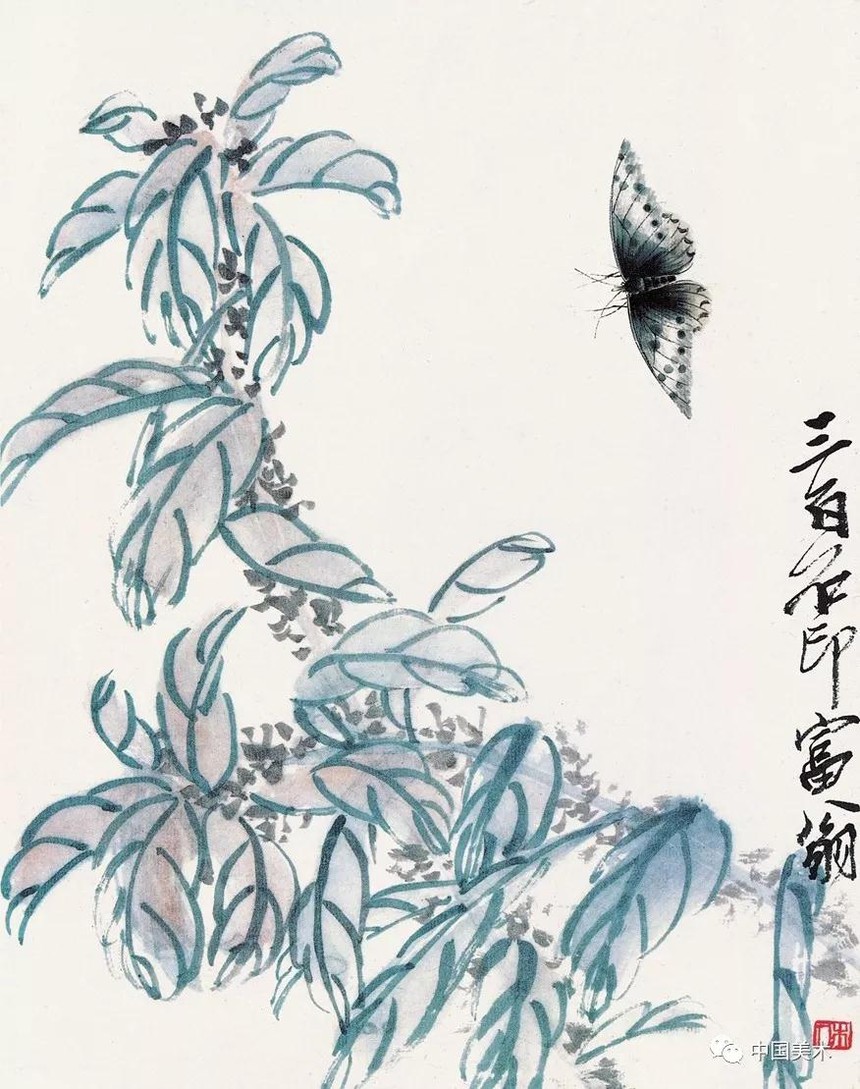 三百石印富翁
木人
中国美术